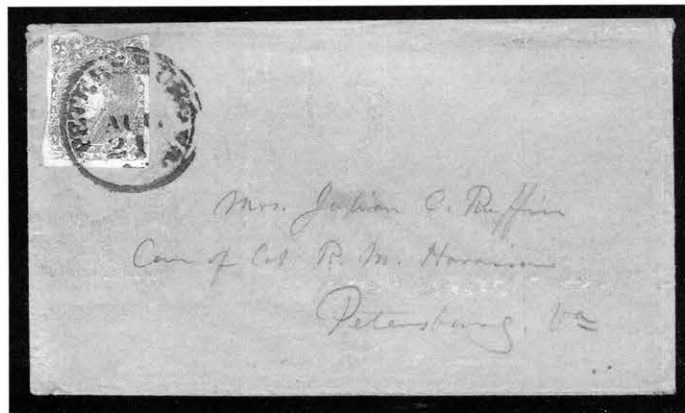 PETERSBURG VA.
AUG
21
Mrs. Julian C. Ruffin
Care of Col R. M. Harrison
Petersburg, Va